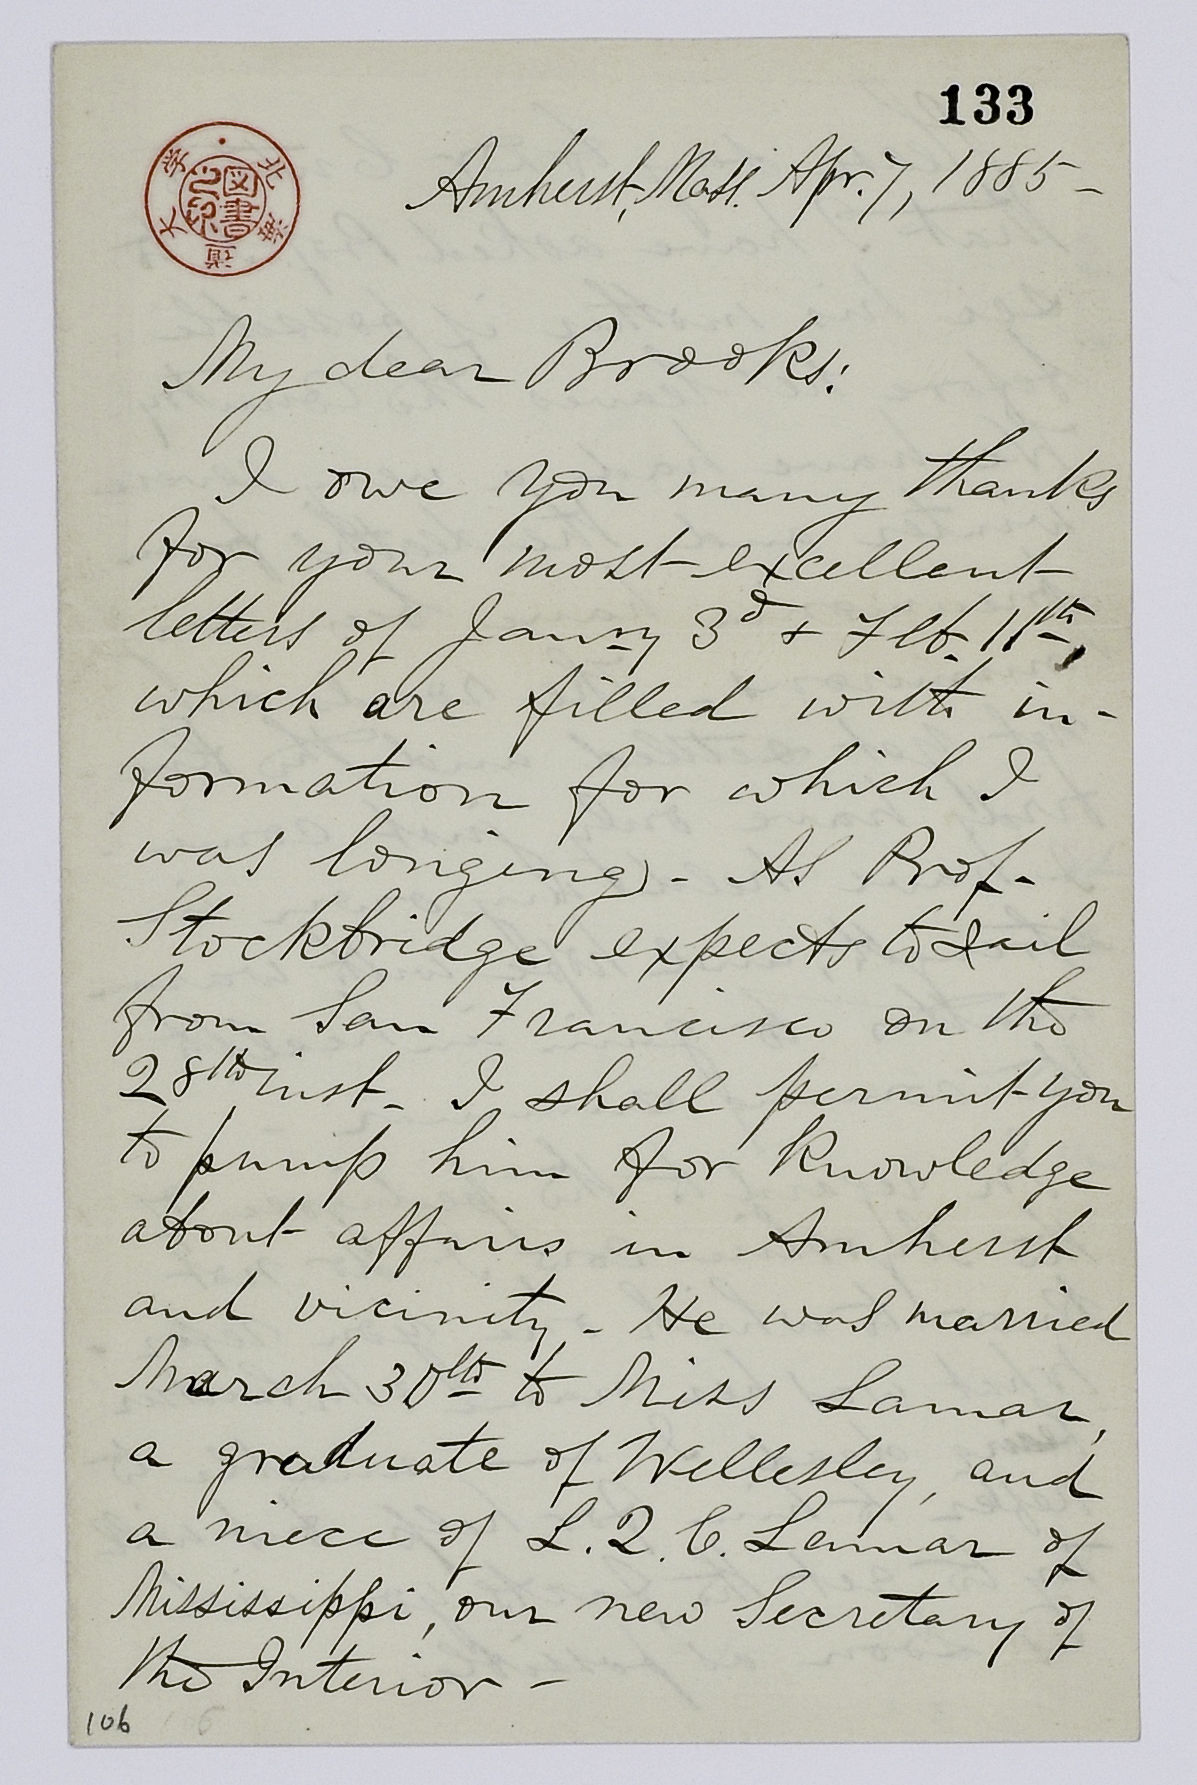 133
北海道大学
図書之印
Amherst, Mass. Apr. 7, 1885-
My dear Brooks:
I owe you many thanks
for your most excellent
letters of Janry 3d & Feb. 11th,
which are filled with in-
formation for which I
was longing. - As Prof.
Stockbridge expects to sail
from San Francisco on the
28th inst. I shall permit you
to pump him for knowledge
about affairs in Amherst
and vicinity. - He was married
March 30th to Miss Lamar,
a graduate of Wellesley, and
a niece of L. Q. C. Lamar of
Mississippi, our new Secretary of
the Interior -
106